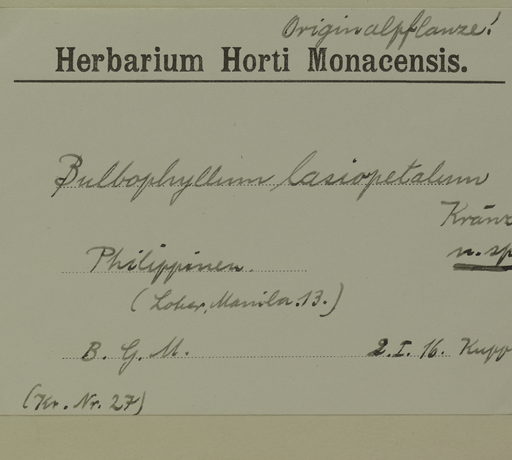 Originalpflanze!
Herbarium Horti Monacensis.
Bulbophyllum lasiopetalum
Kränz
n. sp
Philippinen.
(Loher, Manila. 13.)
B. G. M. 2. I. 16. Kupp
(Kr. Nr. 27)